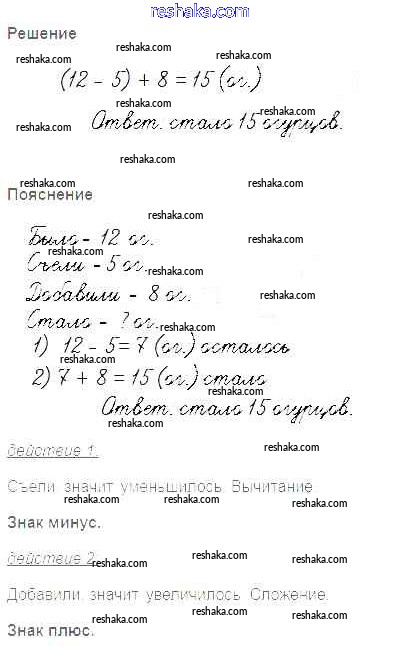 reshaka.com
Решение
reshaka.com
reshaka.com reshaka.com
(12 - 5) + 8 = 15 (ог.)
reshaka.com
reshaka.com
reshaka.com
Ответ. стало 15 огурцов.
reshaka.com
reshaka.com reshaka.com
Пояснение
reshaka.com
Было - 12 ог.
reshaka.com
reshaka.com
Съели - 5 ог.
reshaka.com
Добавили - 8 ог.
reshaka.com
Стало - ? ог.
reshaka.com
1) 12 - 5 = 7 (ог.) осталось
reshaka.com
2) 7 + 8 = 15 (ог.) стало
reshaka.com
Ответ. стало 15 огурцов.
reshaka.com
действие 1.
reshaka.com
Съели, значит уменьшилось. Вычитание
reshaka.com reshaka.com reshaka.com
Знак минус.
действие 2
reshaka.com reshaka.com reshaka.com
Добавили, значит увеличилось. Сложение.
reshaka.com reshaka.com reshaka.com
Знак плюс.